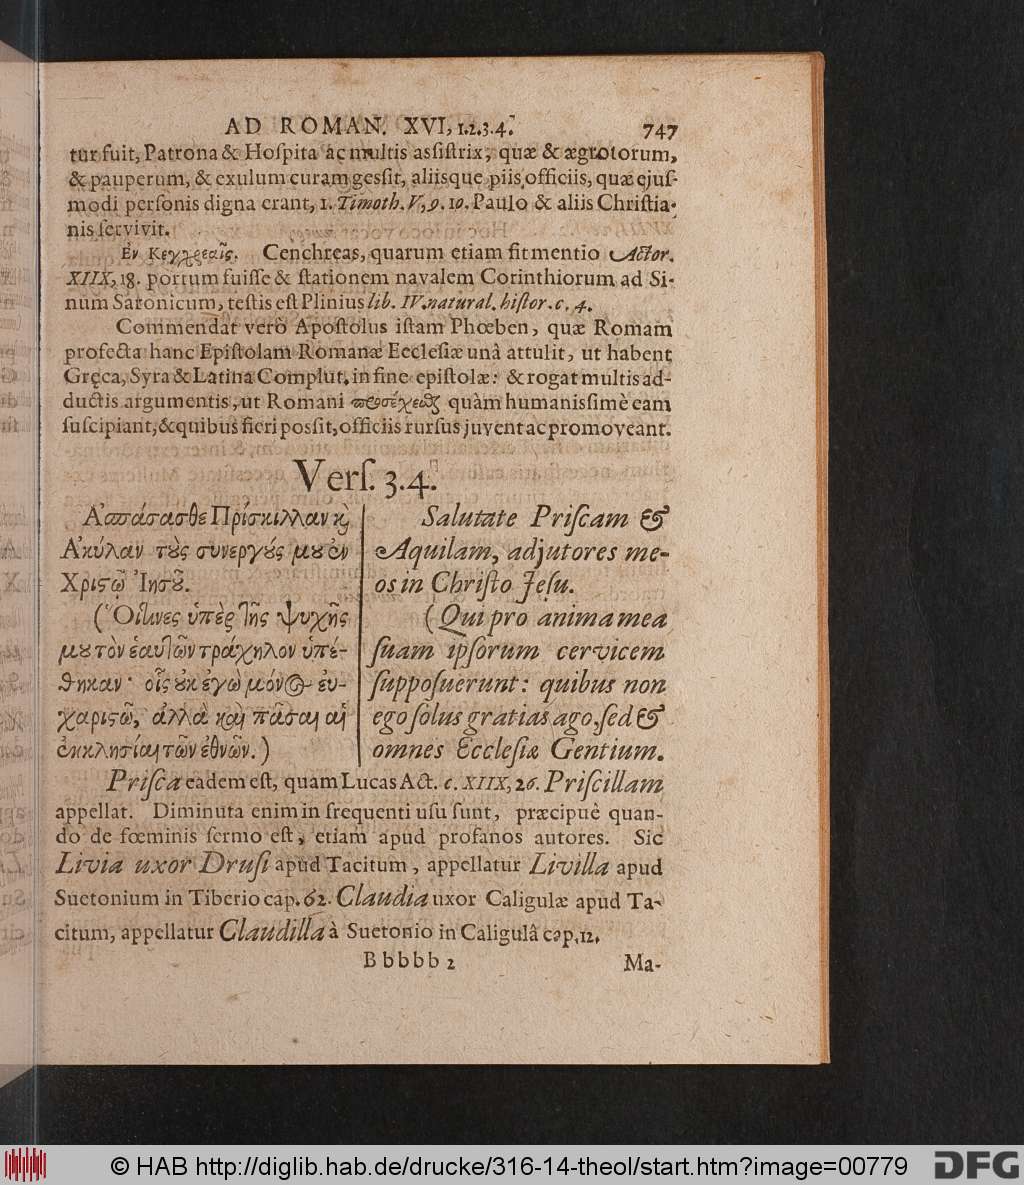 AD ROMAN. XVI, 1.2.3.4. 747
tur fuit, Patrona & Hoſpita ac multis asſiſtrix, quæ & ægrotorum,
& pauperum, & exulum curam gesſit, aliisque piis officiis, quæ ejuſ-
modi perſonis digna erant, 1. Timoth. V, 9. 10. Paulo & aliis Chriſtia-
nis ſervivit.
Ἐν Κεγχρεαῖς. Cenchreas, quarum etiam fit mentio Actor.
XIIX, 18. portum fuiſſe & ſtationem navalem Corinthiorum ad Si-
num Saronicum, teſtis eſt Plinius lib. IV. natural. hiſtor. c. 4.
Commendat verò Apoſtolus iſtam Phœben, quæ Romam
profecta hanc Epiſtolam Romanæ Eccleſiæ unà attulit, ut habent
Gręca, Syra & Latina Complut. in fine epiſtolæ: & rogat multis ad-
ductis argumentis, ut Romani quàm humanisſimè eam
ſuſcipiant, & quibus fieri posſit, officiis rurſus juvent ac promoveant.
Verſ. 3.4.
Ἀσπάσασθε Πρίσκιλλαν κ̀
Ἀκύλαν τοὺς συνεργούς μου ἐν
Χριστῷ Ἰησοῦ.
(Οἵτινες ὑπὲρ τῆς ψυχῆς
μου τὸν ἑαυτῶν τράχηλον ὑπέ-
θηκαν· οἷς οὐκ ἐγὼ μόνος εὐ-
χαριστῶ, ἀλλὰ καὶ πᾶσαι αἱ
ἐκκλησίαι τῶν ἐθνῶν.)
Salutate Priſcam &
Aquilam, adjutores me-
os in Chriſto Jeſu.
(Qui pro anima mea
ſuam ipſorum cervicem
ſuppoſuerunt: quibus non
ego ſolus gratias ago, ſed &
omnes Eccleſiæ Gentium.
Priſca eadem eſt, quam Lucas Act. c. XIIX, 26. Priſcillam
appellat. Diminuta enim in frequenti uſu ſunt, præcipuè quan-
do de fœminis ſermo eſt, etiam apud profanos autores. Sic
Livia uxor Druſi apud Tacitum, appellatur Livilla apud
Suetonium in Tiberio cap. 62. Claudia uxor Caligulæ apud Ta-
citum, appellatur Claudilla à Suetonio in Caligulâ cap. 12.
Bbbbb 2 Ma-
© HAB http://diglib.hab.de/drucke/316-14-theol/start.htm?image=00779 DFG